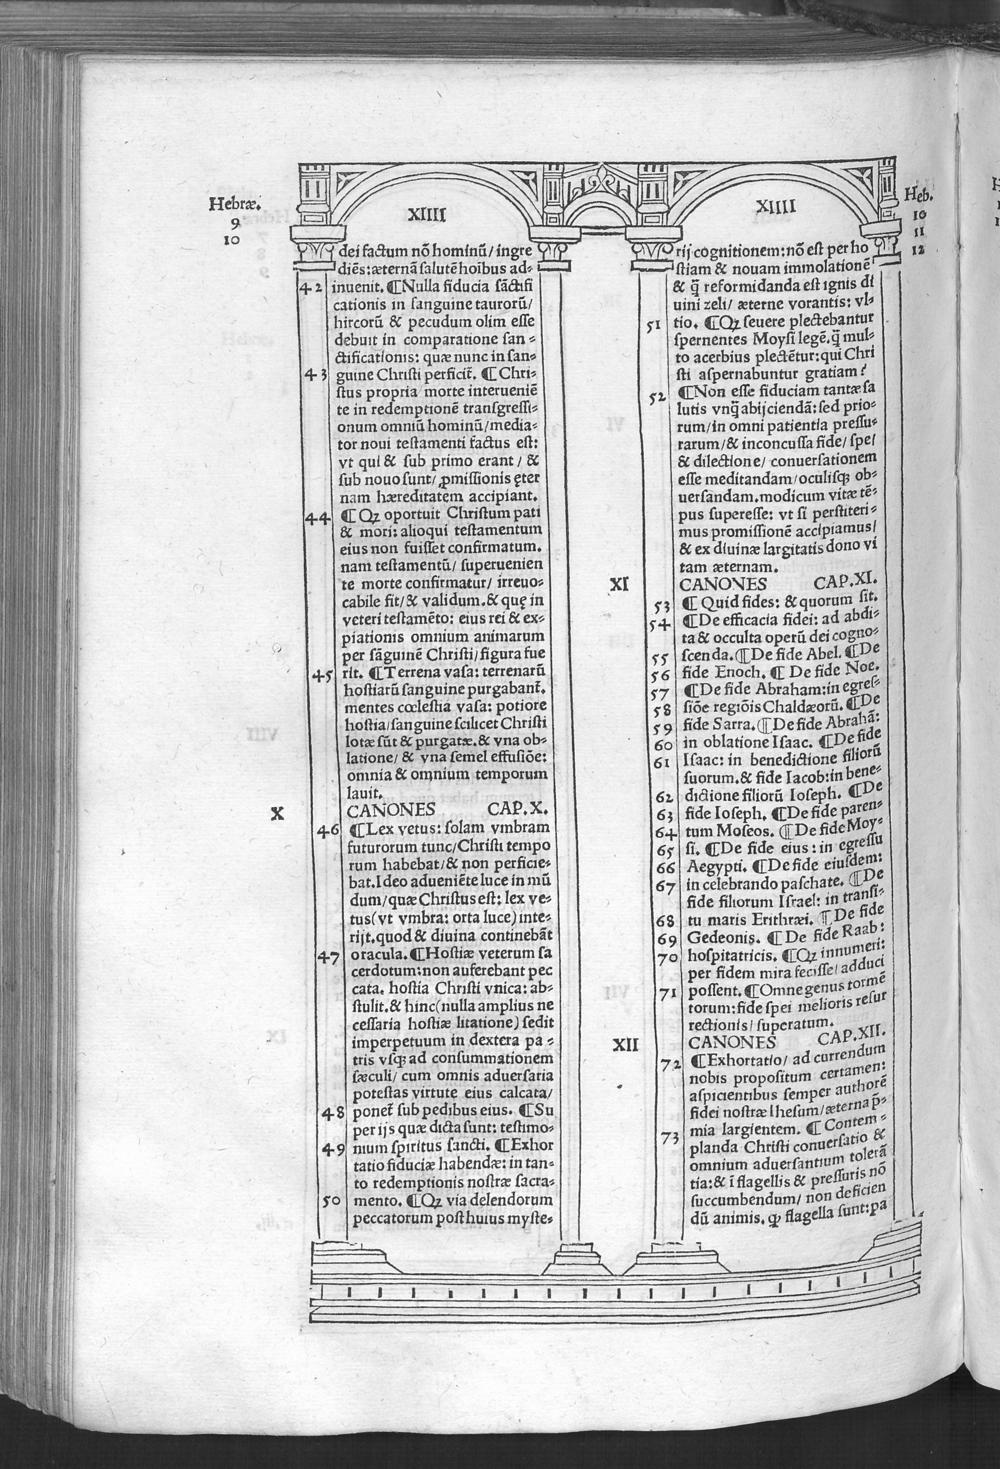 Hebræ.
9
10
XIIII
dei factum nõ hominũ/ ingre
diẽs: æternã salutẽ hoibus ad⸗
42 inuenit. ¶Nulla fiducia sãctifi
cationis in sanguine taurorũ/
hircorũ & pecudum olim esse
debuit in comparatione san⸗
ctificationis: quæ nunc in san⸗
43 guine Christi perficit̃. ¶Chri⸗
stus propria morte interueniẽ
te in redemptionẽ transgressi⸗
onum omniũ hominũ/media⸗
tor noui testamenti factus est:
vt qui & sub primo erant/ &
sub nouo sunt/ ꝓmissionis ęter
nam hæreditatem accipiant.
44 ¶Qꝫ oportuit Christum pati
& mori: alioqui testamentum
eius non fuisset confirmatum.
nam testamentũ/ superuenien
te morte confirmatur/ irreuo⸗
cabile fit/& validum.& quę in
veteri testamẽto: eius rei & ex⸗
piationis omnium animarum
per sãguinẽ Christi/figura fue
45 rit. ¶Terrena vasa: terrenarũ
hostiarũ sanguine purgabant̃.
mentes cœlestia vasa: potiore
hostia/sanguine scilicet Christi
lotæ sũt & purgatæ.& vna ob⸗
latione/ & vna semel effusiõe:
omnia & omnium temporum
lauit.
X CANONES CAP.X.
46 ¶Lex vetus: solam vmbram
futurorum tunc/Christi tempo
rum habebat/& non perficie⸗
bat.Ideo adueniẽte luce in mũ
dum/quæ Christus est: lex ve⸗
tus(vt vmbra: orta luce)inte⸗
rijt.quod & diuina continebãt
47 oracula.¶Hostiæ veterum sa
cerdotum:non auferebant pec
cata. hostia Christi vnica: ab⸗
stulit.& hinc(nulla amplius ne
cessaria hostiæ litatione)sedit
imperpetuum in dextera pa⸗
tris vsqꝫ ad consummationem
sæculi/ cum omnis aduersaria
potestas virtute eius calcata/
48 ponet̃ sub pedibus eius. ¶Su
per ijs quæ dicta sunt: testimo⸗
49 nium spiritus sancti. ¶Exhor
tatio fiduciæ habendæ: in tan⸗
to redemptionis nostræ sacra⸗
50 mento. ¶Qꝫ via delendorum
peccatorum post huius myste⸗
XIIII
Heb.
10
11
12
rij cognitionem:nõ est per ho
stiam & nouam immolationẽ
& q̃ reformidanda est ignis di
uini zeli/ æterne vorantis: vl⸗
51 tio. ¶Qꝫ seuere plectebantur
spernentes Moysi legẽ.q̃ mul⸗
to acerbius plectẽtur:qui Chri
sti aspernabuntur gratiam?
52 ¶Non esse fiduciam tantæ sa
lutis vnq̃ abijciendã: sed prio⸗
rum/in omni patientia pressu⸗
rarum/& inconcussa fide/ spe/
& dilectione/ conuersationem
esse meditandam/oculisqꝫ ob⸗
uersandam.modicum vitæ tẽ⸗
pus superesse: vt si perstiteri⸗
mus promissionẽ accipiamus/
& ex diuinæ largitatis dono vi
tam æternam.
XI CANONES CAP.XI.
53 ¶Quid fides: & quorum sit.
54 ¶De efficacia fidei: ad abdi⸗
ta & occulta operũ dei cogno⸗
55 scenda.¶De fide Abel. ¶De
56 fide Enoch. ¶De fide Noe.
57 ¶De fide Abraham:in egres⸗
58 siõe regiõis Chaldæorũ. ¶De
59 fide Sarra. ¶De fide Abrahã:
60 in oblatione Isaac. ¶De fide
61 Isaac: in benedictione filiorũ
suorum.& fide Iacob:in bene⸗
62 dictione filiorũ Ioseph. ¶De
63 fide Ioseph. ¶De fide paren⸗
64 tum Moseos. ¶De fide Moy⸗
65 si. ¶De fide eius: in egressu
66 Aegypti. ¶De fide eiusdem:
67 in celebrando paschate. ¶De
fide filiorum Israel: in transi⸗
68 tu maris Erithræi. ¶De fide
69 Gedeonis. ¶De fide Raab:
70 hospitatricis. ¶Qꝫ innumeri:
per fidem mira fecisse/ adduci
71 possent. ¶Omne genus tormẽ
torum:fide spei melioris resur
rectionis/ superatum.
XII CANONES CAP.XII.
72 ¶Exhortatio/ ad currendum
nobis propositum certamen:
aspicientibus semper authorẽ
fidei nostræ Ihesum/æterna p̃⸗
mia largientem. ¶Contem⸗
73 planda Christi conuersatio &
omnium aduersantium tolerã
tia:& ĩ flagellis & pressuris nõ
succumbendum/ non deficien
dũ animis. qꝫ flagella sunt:pa